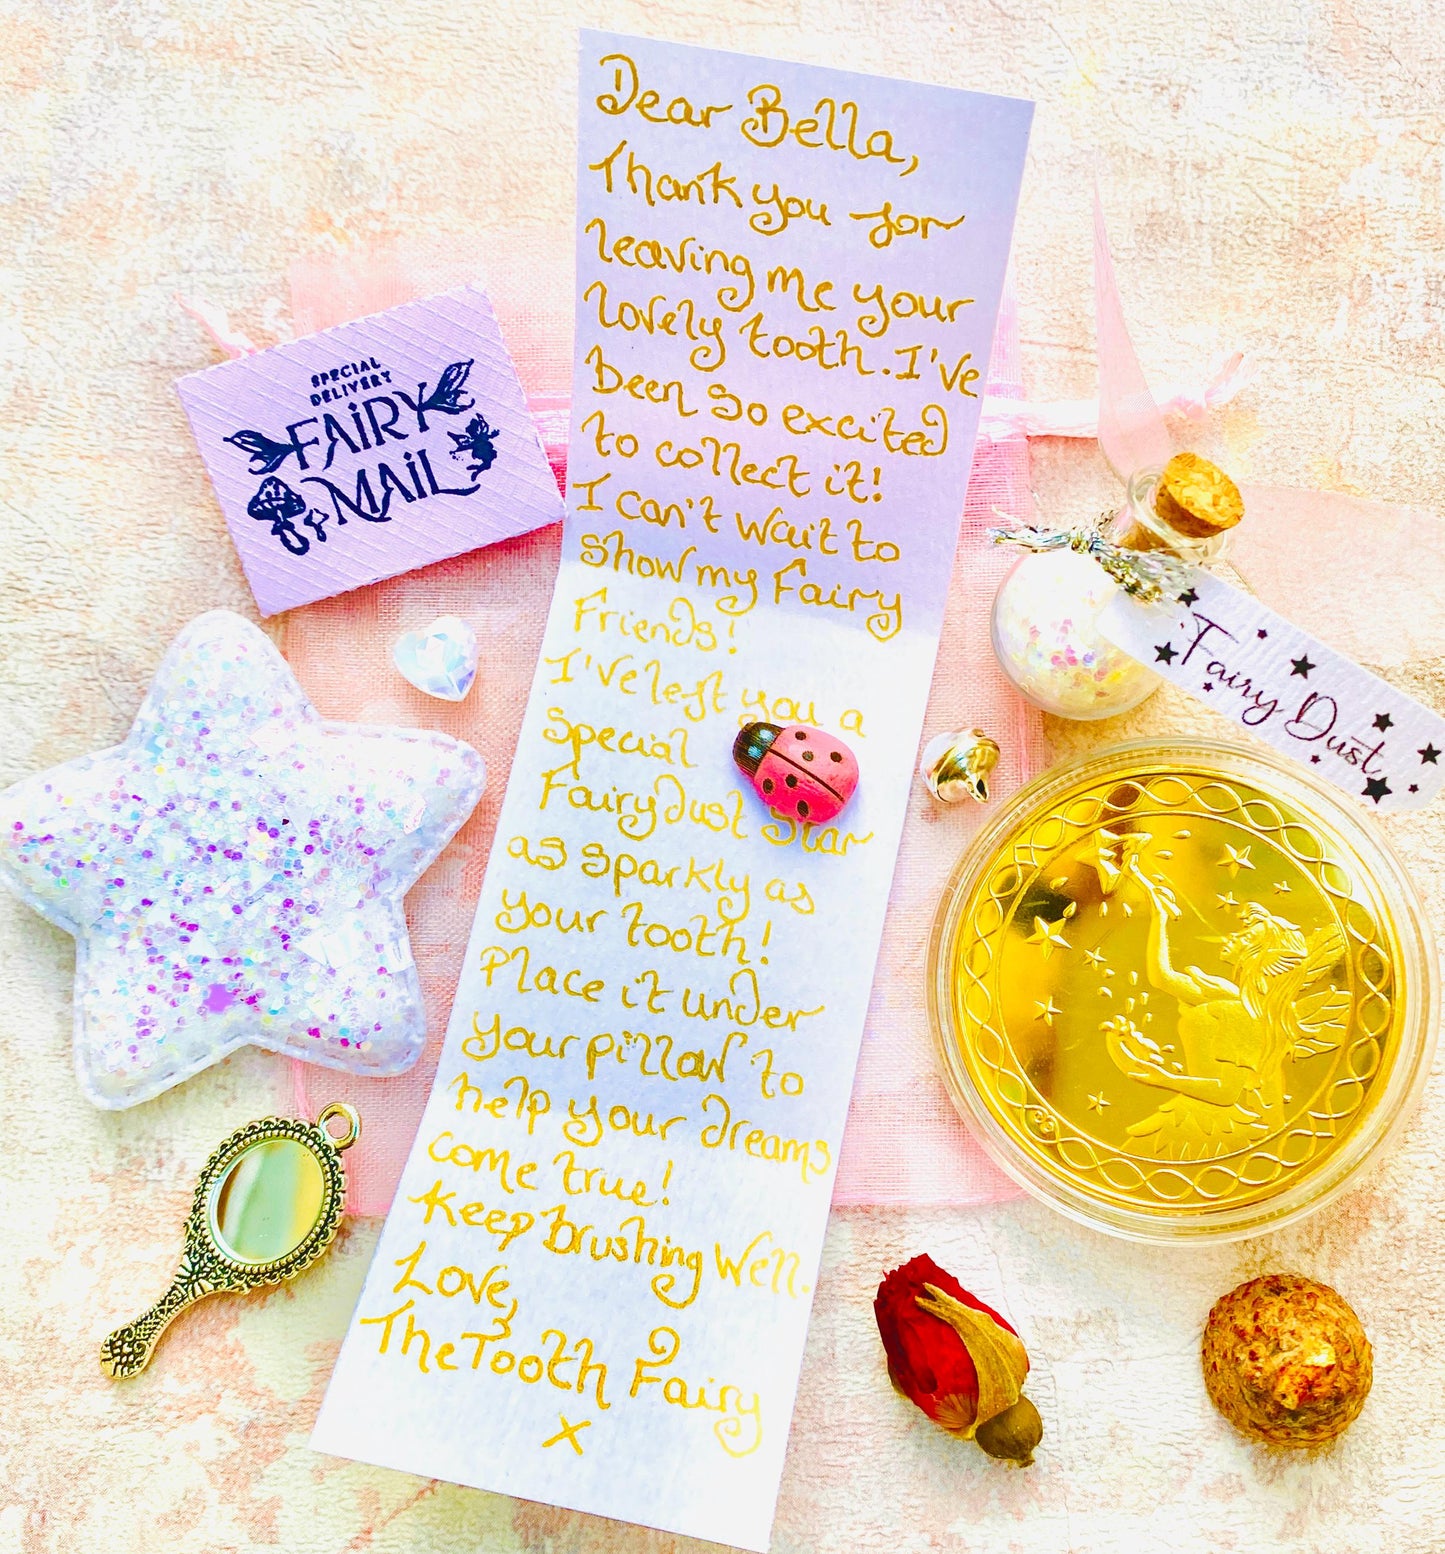 Dear Bella,
Thank you for
leaving me your
lovely tooth. I've
been so excited
to collect it!
I can't wait to
show my Fairy
Friends!
I've left you a
special
Fairydust Star
as sparkly as
your tooth!
Place it under
your pillow to
help your dreams
come true!
Keep brushing well.
Love,
The Tooth Fairy
x
SPECIAL
DELIVERY
FAIRY
MAIL
Fairy Dust